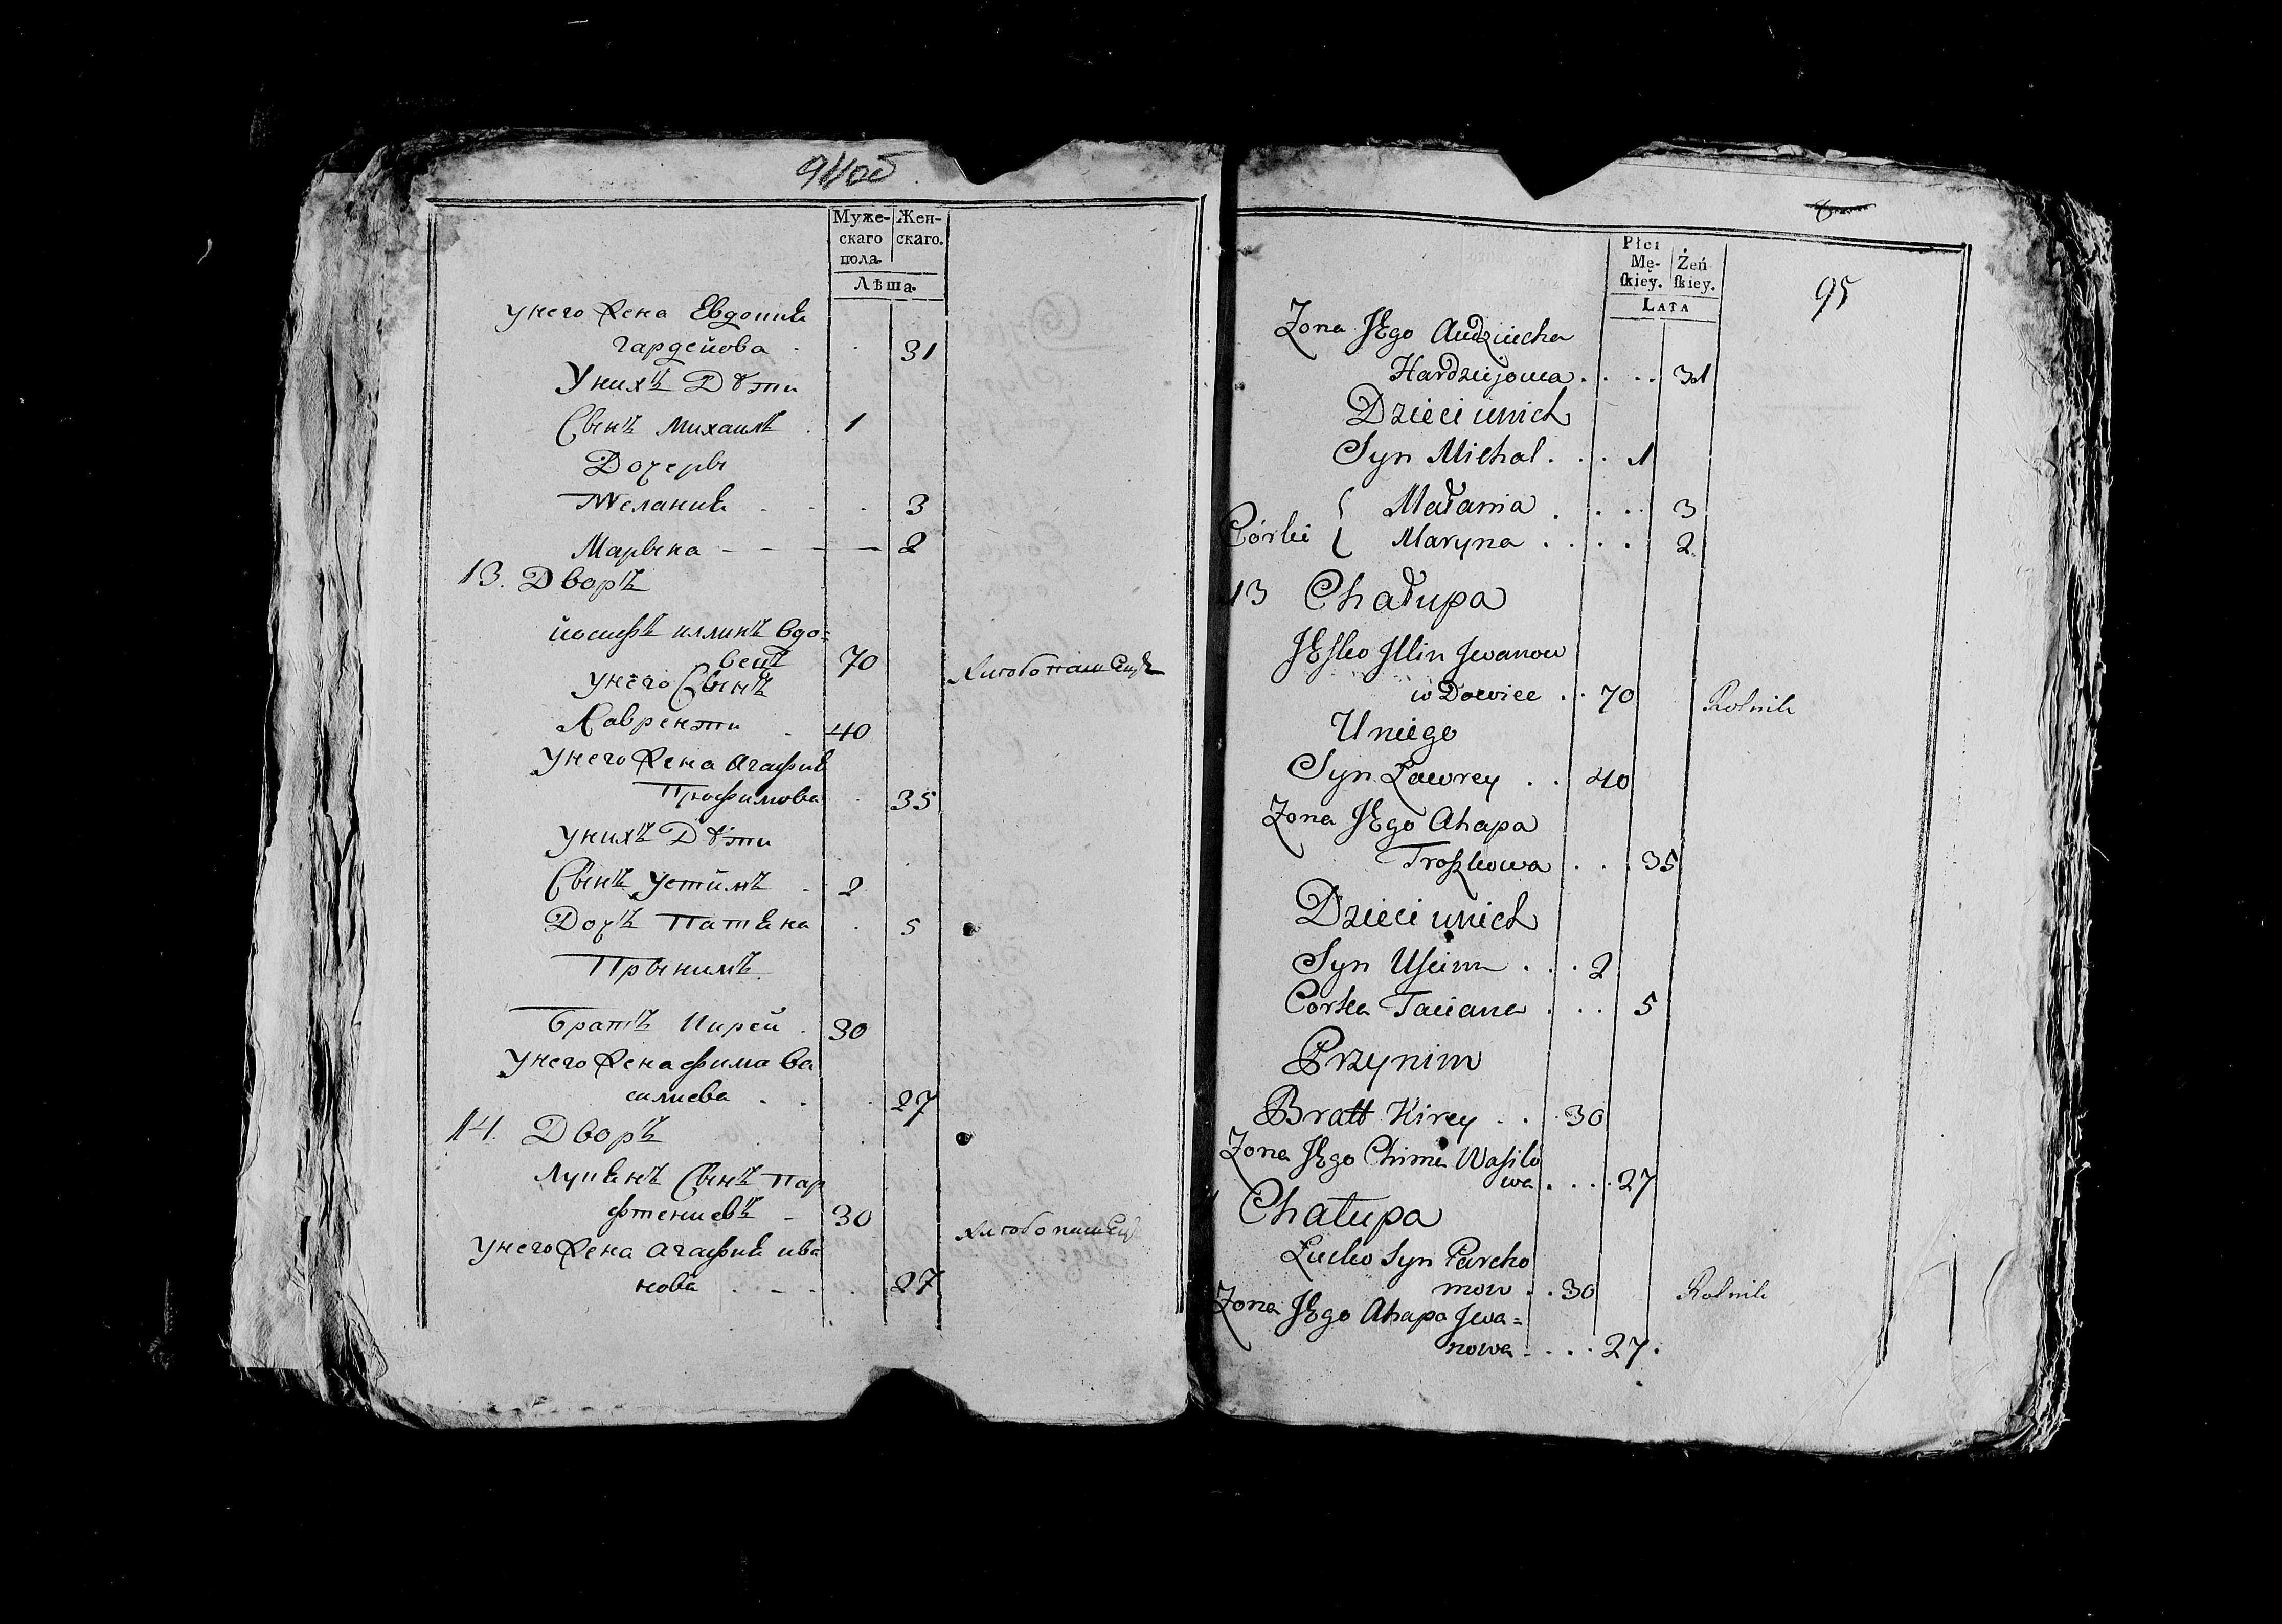 94 об
Муже-
скаго
пола.
Жен-
скаго.
Лѣта.
у него жена Евдокия
гардеиова 31
У нихъ Дѣти
Сынъ Михаилъ 1
Дочеры
Мелания 3
Марына 2
13. Дворъ
иосифъ иллинъ вдо=
вецъ 70 хлебопашецъ
у него Сынъ
Лаврентии 40
у него жена Агафия
Трофимова 35
у нихъ Дѣти
Сынъ Устимъ 2
Дочъ Татияна 5
При нимъ
братъ Кирей 30
у него жена фима ва
силиева 27
14. Дворъ
Лукянъ Сынъ Пар
фтениевъ 30 хлебопашецъ
у него жена Агафия ива
нова 27
95
Płci
Mę-
ſkiey.
Żeń
ſkiey.
Lata
Zona JEgo Audziucha
Hardziejowa 31
Dzieci unich
Syn Michal 1
Córki { Małania 3
Maryna 2
13 Chałupa
JEſko Jllin Jwanow
wDowiec 70 Rolnik
Uniego
Syn Lawrey 40
Zona JEgo Ahapa
Troſzkowa 35
Dzieci unich
Syn Uſcim 2
Corka Taciana 5
Przynim
Bratt Kirey 30
Zona JEgo Chima Waſilo
wa 27
Chałupa
Lucko Syn Parcho
mow 30 Rolnik
Zona JEgo Ahapa Jwa=
nowa 27